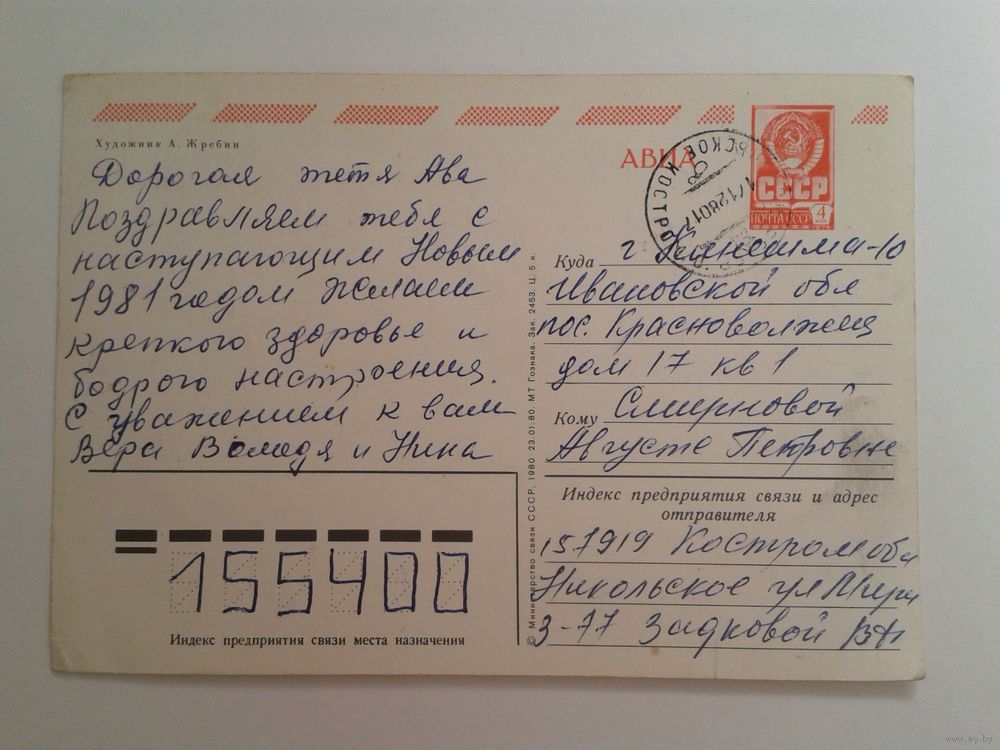 Художник А. Жребин
АВИА
СССР
ПОЧТА СССР 4
Дорогая тетя Ава
Поздравляем тебя с
наступающим Новым
1981 годом Желаем
крепкого здоровье и
бодрого настроения.
С уважением к вам
Вера Володя и Нина
Куда г. Кинешма-10
Ивановской обл
пос. Красноволжец
дом 17 кв 1
Кому Смирновой
Августе Петровне
Индекс предприятия связи и адрес
отправителя
157919 Костром обл
Никольское ул Мира
3-77 Задковой
155400
Индекс предприятия связи места назначения
© Министерство связи СССР, 1980. 23.01.80. МТ Гознака. Зак. 2453. Ц. 5 к.
www.ay.by